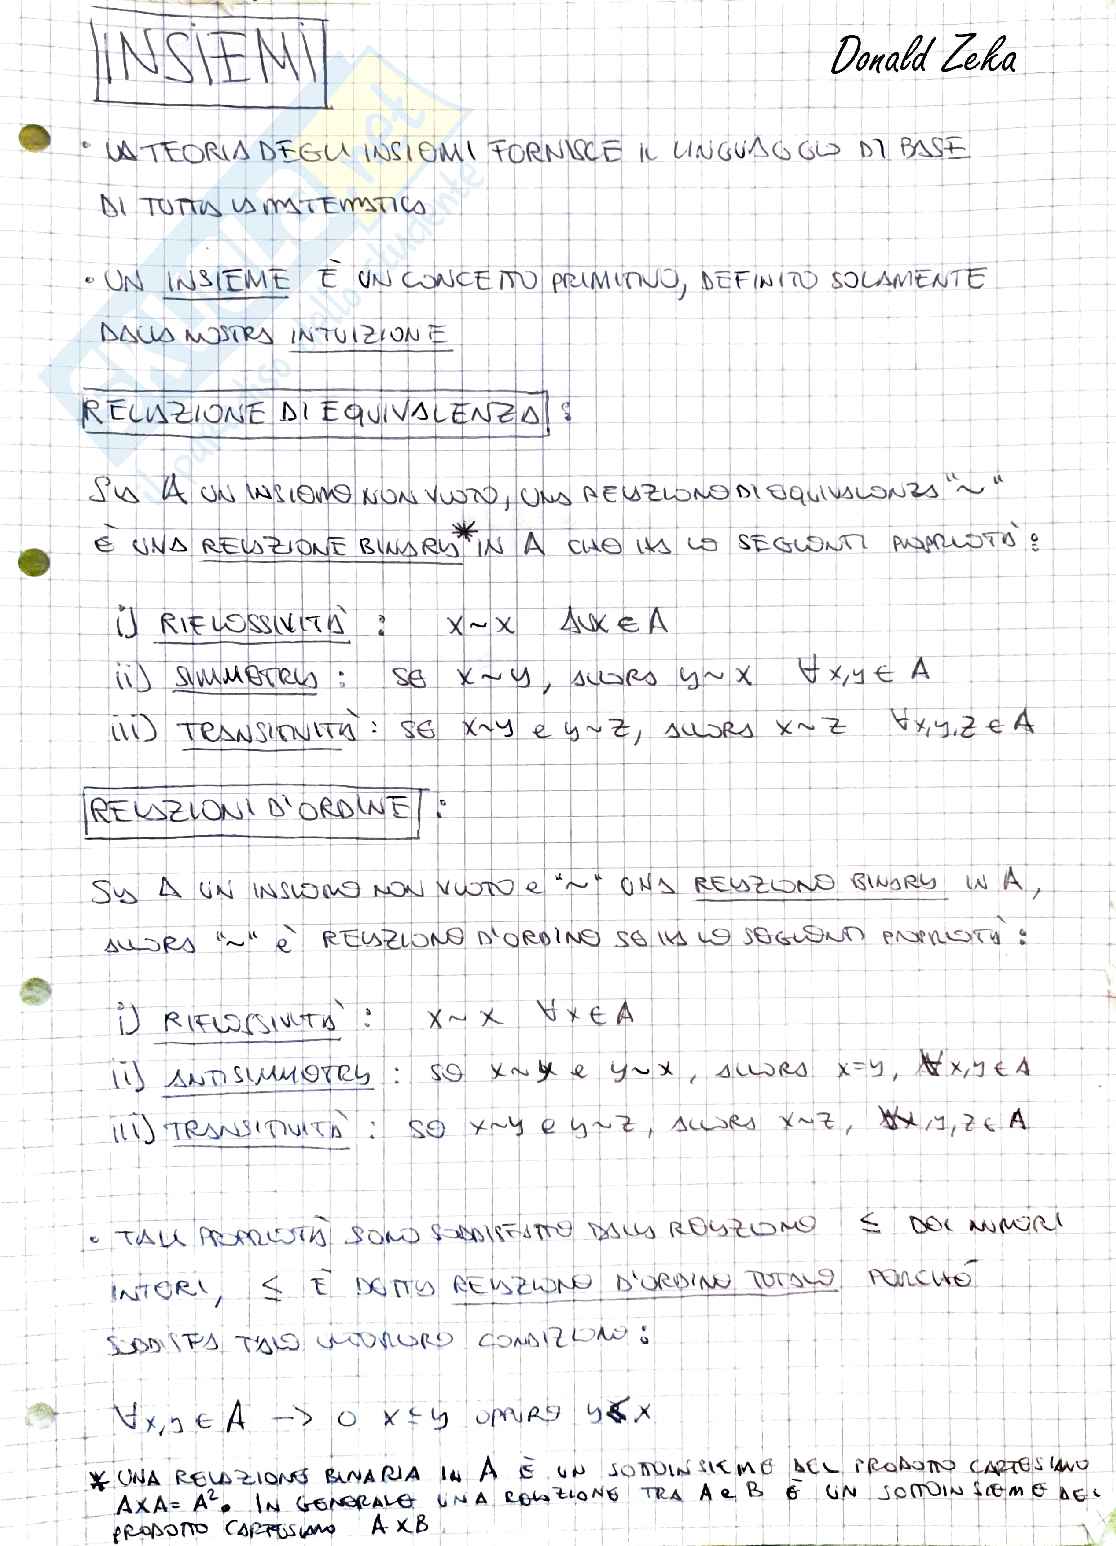 INSIEMI
Donald Zeka
• LA TEORIA DEGLI INSIEMI FORNISCE IL LINGUAGGIO DI BASE
DI TUTTA LA MATEMATICA
• UN INSIEME È UN CONCETTO PRIMITIVO, DEFINITO SOLAMENTE
DALLA NOSTRA INTUIZIONE
RELAZIONE DI EQUIVALENZA:
SIA A UN INSIEME NON VUOTO, UNA RELAZIONE DI EQUIVALENZA "~"
È UNA RELAZIONE BINARIA* IN A CHE HA LE SEGUENTI PROPRIETÀ:
i) RIFLESSIVITÀ: x~x ∀x∈A
ii) SIMMETRIA: SE x~y, ALLORA y~x ∀x,y∈A
iii) TRANSITIVITÀ: SE x~y e y~z, ALLORA x~z ∀x,y,z∈A
RELAZIONI D'ORDINE:
SIA A UN INSIEME NON VUOTO e "~" UNA RELAZIONE BINARIA IN A,
ALLORA "~" è RELAZIONE D'ORDINE SE HA LE SEGUENTI PROPRIETÀ:
i) RIFLESSIVITÀ: x~x ∀x∈A
ii) ANTISIMMETRIA: SE x~y e y~x, ALLORA x=y, ∀x,y∈A
iii) TRANSITIVITÀ: SE x~y e y~z, ALLORA x~z, ∀x,y,z∈A
• TALI PROPRIETÀ SONO SODDISFATTE DALLA RELAZIONE ≤ DEI NUMERI
INTERI, ≤ È DETTA RELAZIONE D'ORDINE TOTALE PERCHÉ
SODDISFA TALE ULTERIORE CONDIZIONE:
∀x,y∈A -> O x≤y OPPURE y≤x
* UNA RELAZIONE BINARIA IN A È UN SOTTOINSIEME DEL PRODOTTO CARTESIANO
AxA=A². IN GENERALE UNA RELAZIONE TRA A e B È UN SOTTOINSIEME DEL
PRODOTTO CARTESIANO AxB